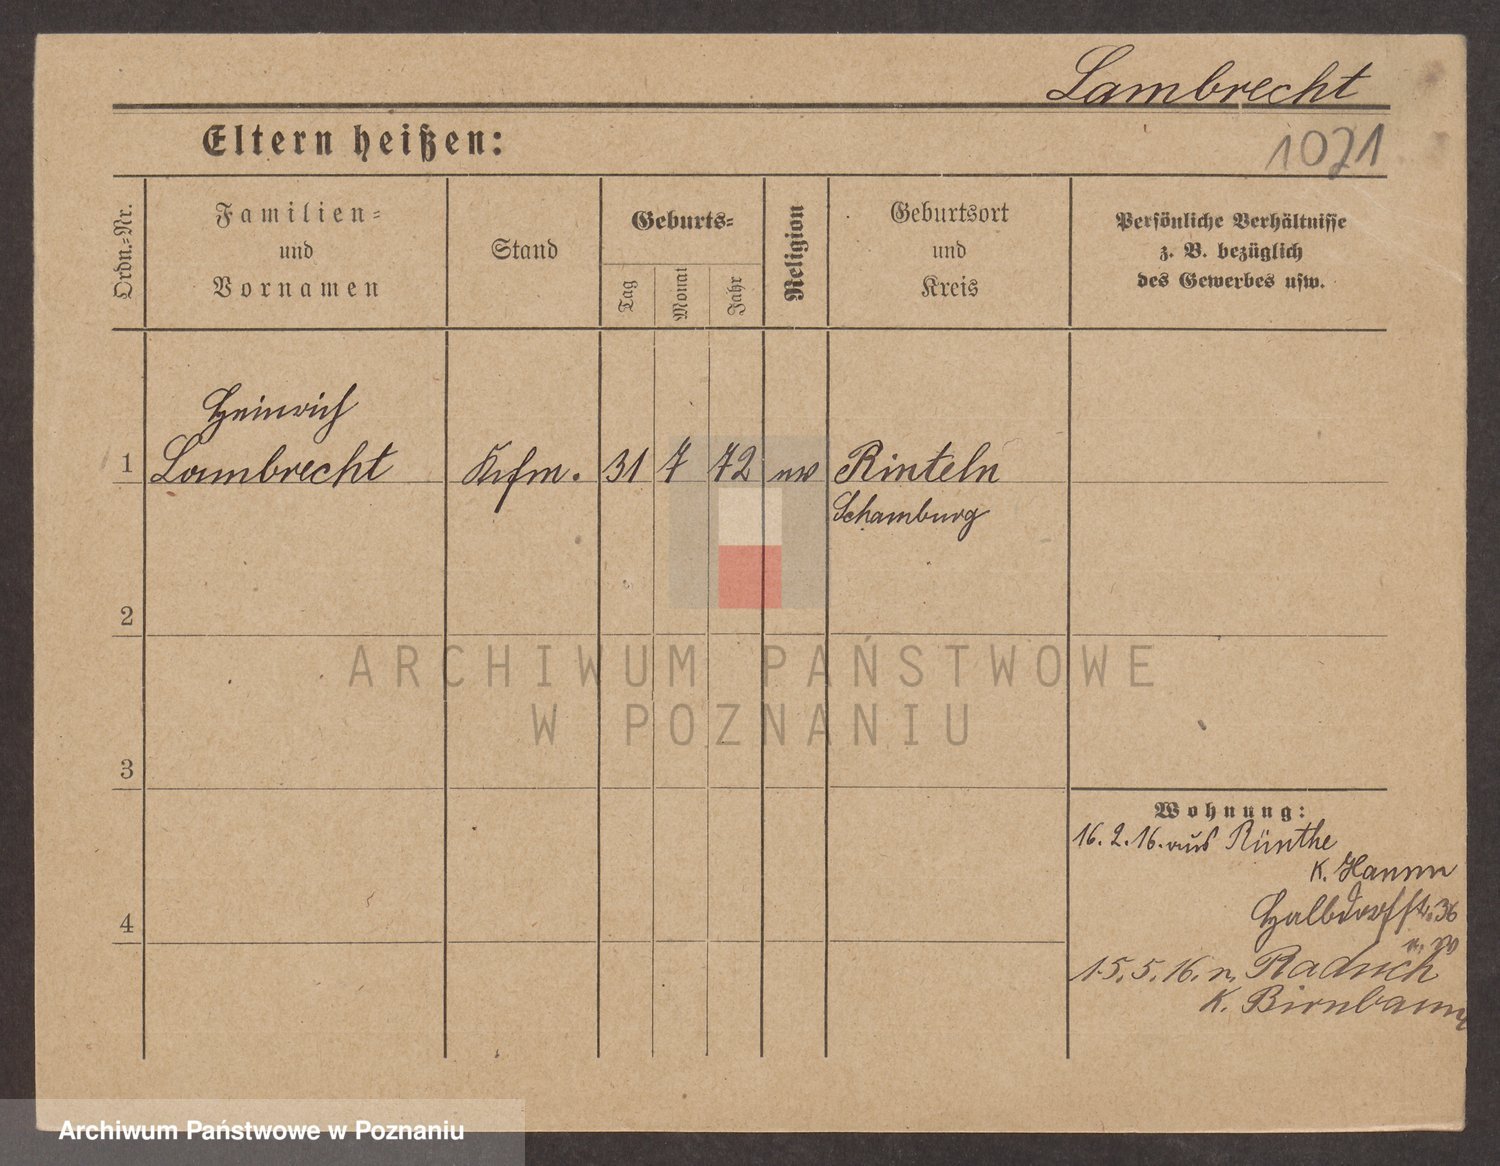 Lambrecht
Eltern heißen:
1071
Ordn.=Nr.
Familien=
und
Vornamen
Stand
Geburts=
Tag
Monat
Jahr
Religion
Geburtsort
und
Kreis
Persönliche Verhältnisse
z. B. bezüglich
des Gewerbes usw.
Heinrich
1 Lambrecht Kfm. 31 7 72 ew Rinteln
Schamburg
2
ARCHIWUM PAŃSTWOWE
W POZNANIU
3
Wohnung:
16. 2. 16. aus Rünthe
K. Hamm
Halbdorfstr. 36
4
15. 5. 16. n. Radusch
K. Birnbaum
Archiwum Państwowe w Poznaniu